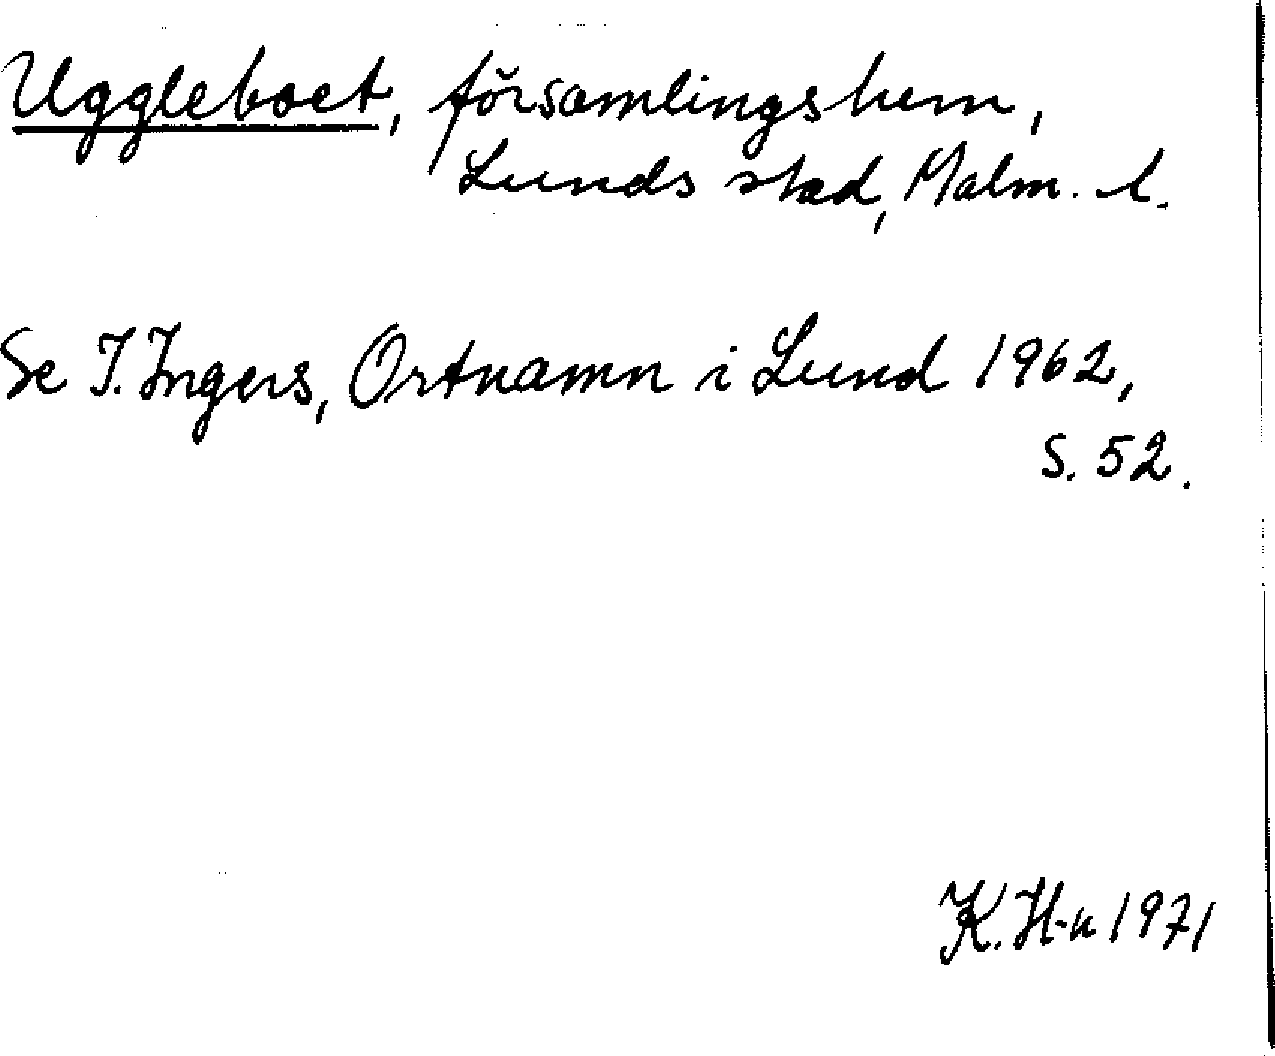 Uggleboet, församlingshem,
Lunds stad, Malm. l.
Se I. Ingers, Ortnamn i Lund 1962,
s. 52.
K. H-n 1971